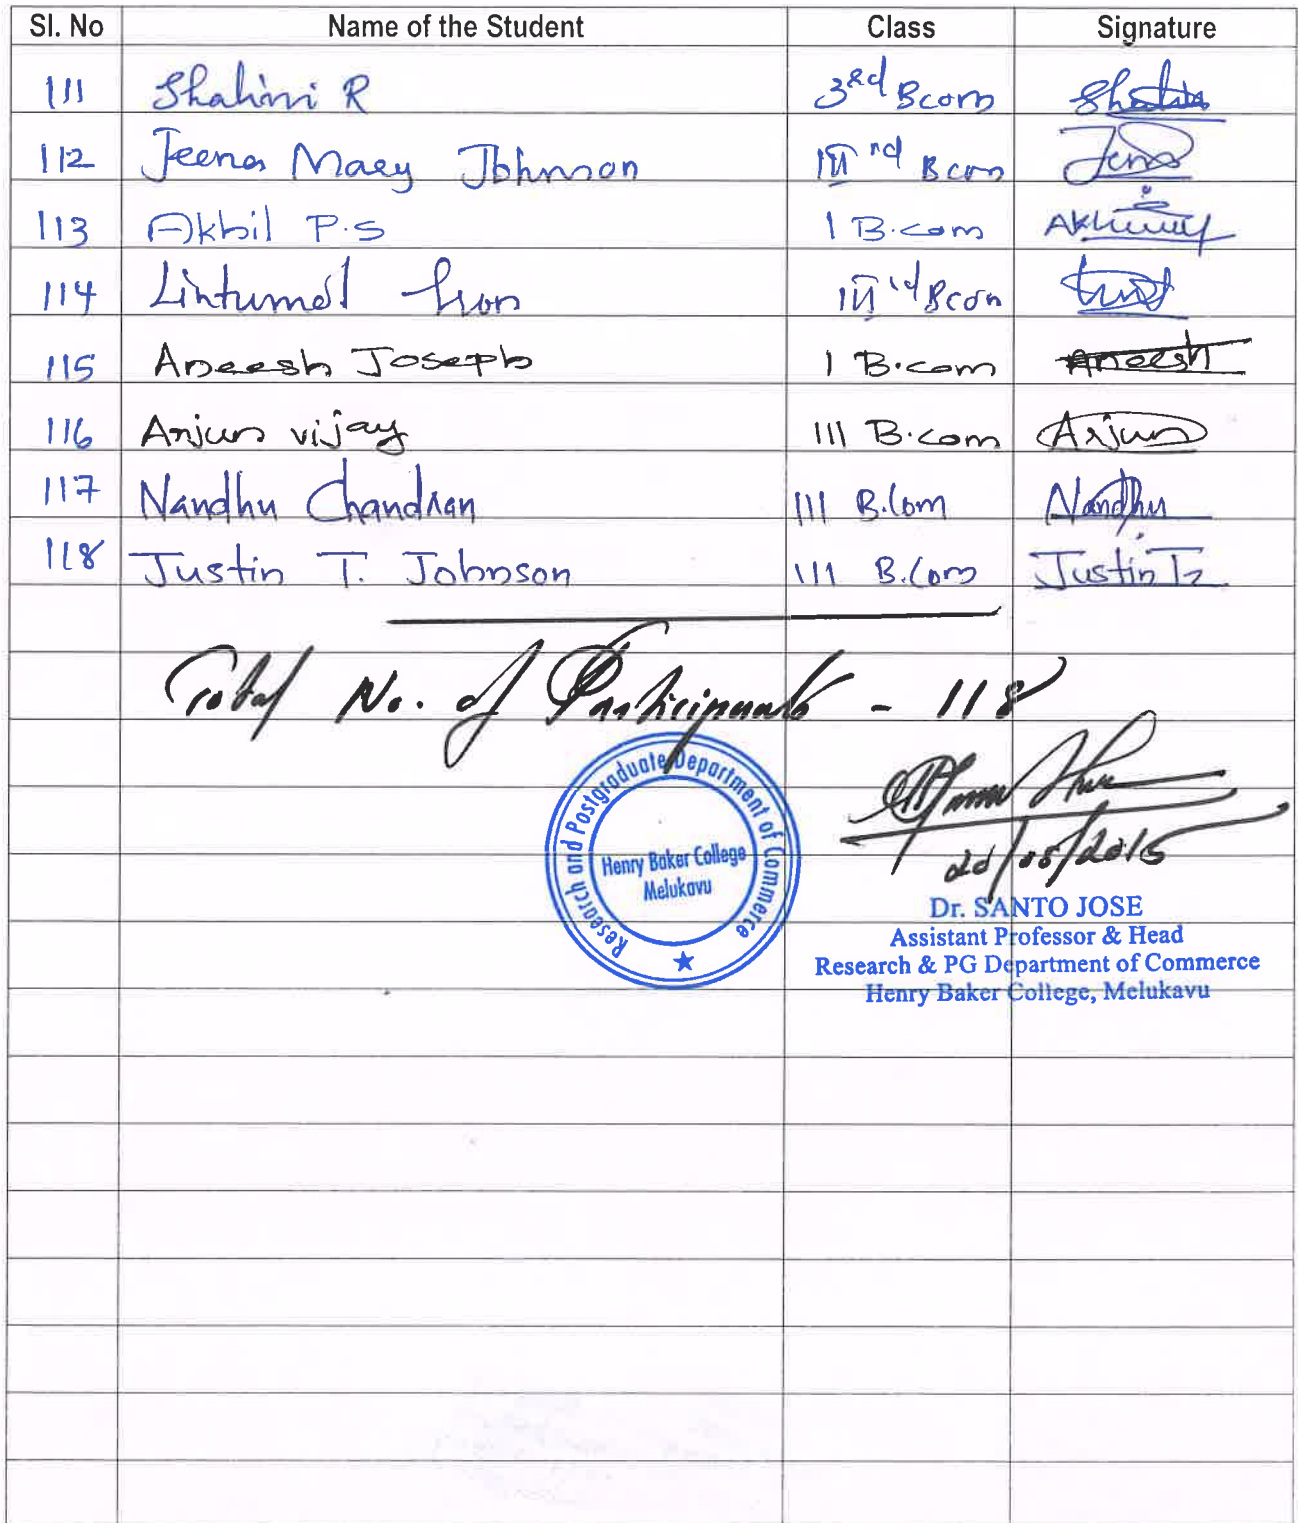 Sl. No Name of the Student Class Signature
111 Shalini R 3rd Bcom
112 Jeena Mary Johnson III nd Bcom Jena
113 Akhil P.S I B.com
114 Lintumol III rd Bcom
115 Aneesh Joseph I B.com Aneesh
116 Arjun vijay III B.com Arjun
117 Nandhu Chandran III B.Com Nandhu
118 Justin T. Johnson III B.Com Justin T
Total No. of Participants - 118
Research and Postgraduate Department of Commerce
Henry Baker College
Melukavu
Dr. SANTO JOSE
Assistant Professor & Head
Research & PG Department of Commerce
Henry Baker College, Melukavu